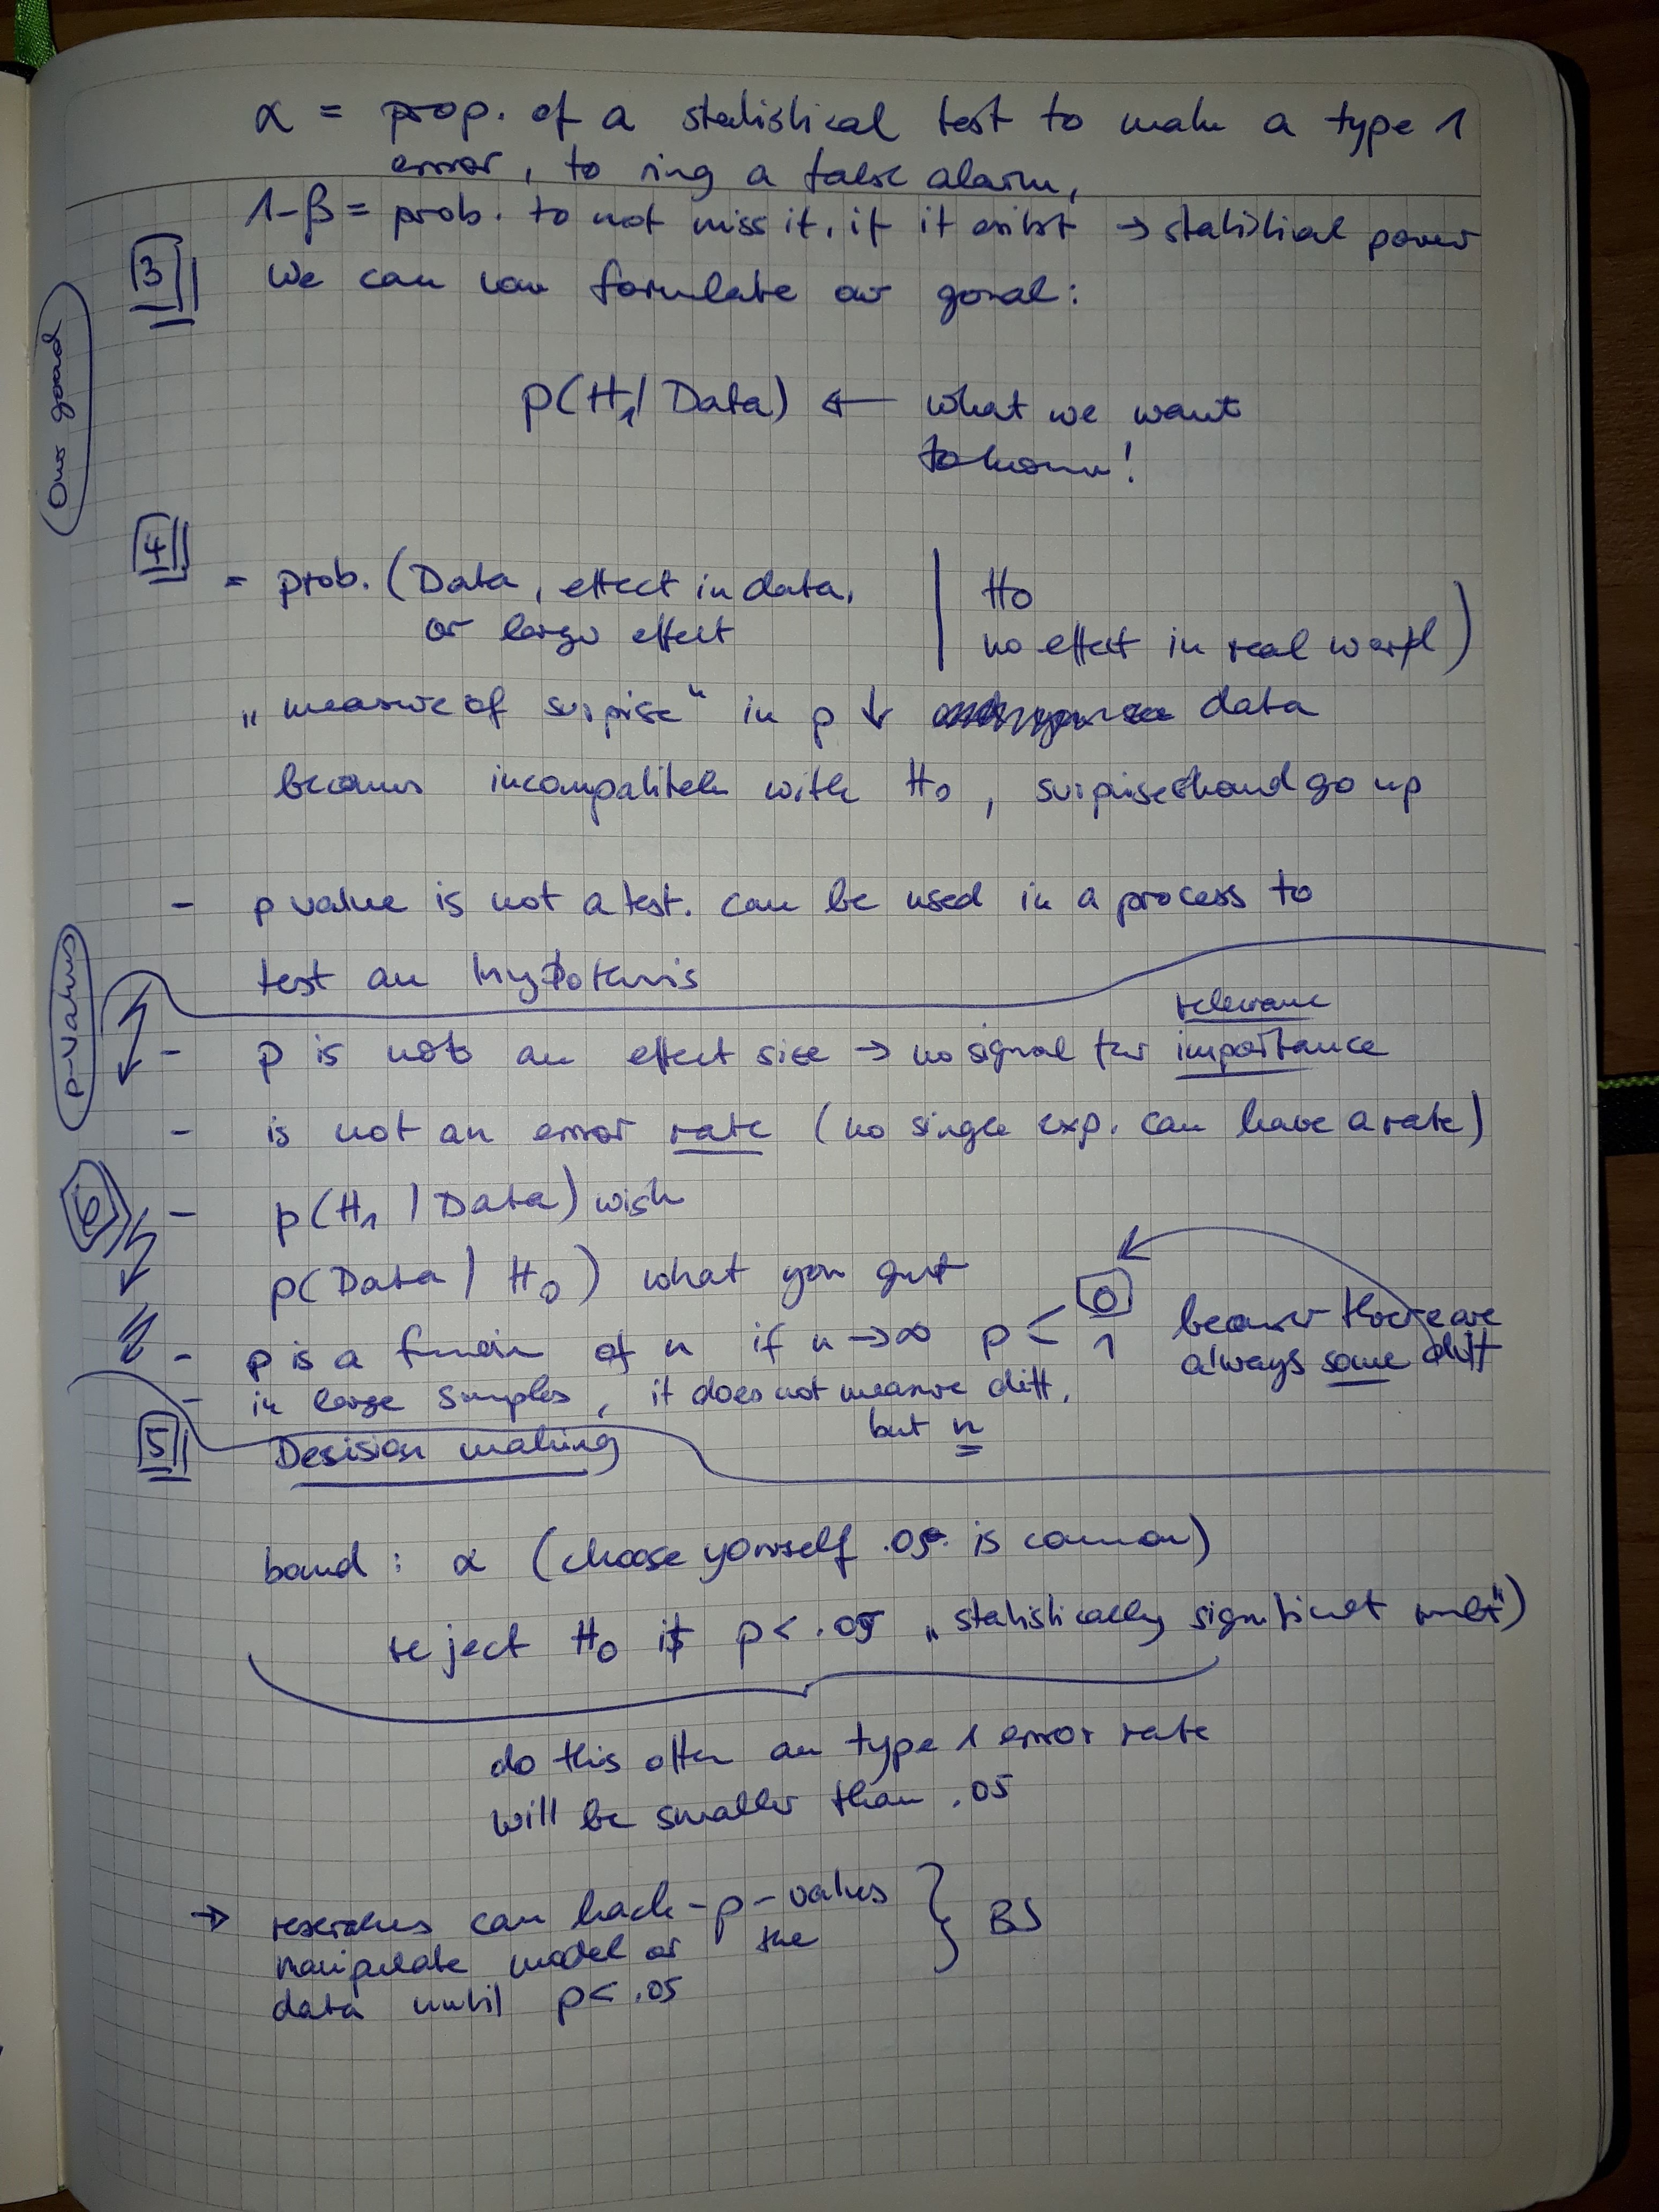 α = prop. of a statistical test to make a type 1
error, to ring a false alarm,
1-β = prob. to not miss it, if it exist → statistical power
3
we can now formulate our goal:
Our goal
p(H1 | Data) ← what we want
to know!
4
= prob. (Data, effect in data, | H0
or larger effect | no effect in real world)
„measure of surprise“ in p ↓ data
becomes incompatible with H0, surprise should go up
- p value is not a test. can be used in a process to
test an hypothesis
p-values
relevance
- p is not an effect size → no signal for importance
- is not an error rate (no single exp. can have a rate)
6
- p(H1 | Data) wish
p(Data | H0) what you get
- p is a function of n if n → ∞ p < 0 1 because there are
always some diff
- in large samples, it does not measure diff,
but n
5
Desision making
bound: α (choose yourself .05 is common)
reject H0 if p < .05 „statistically significant result“)
do this often an type 1 error rate
will be smaller than .05
→ researches can hack-p-values
manipulate model or the
data until p < .05
} BS